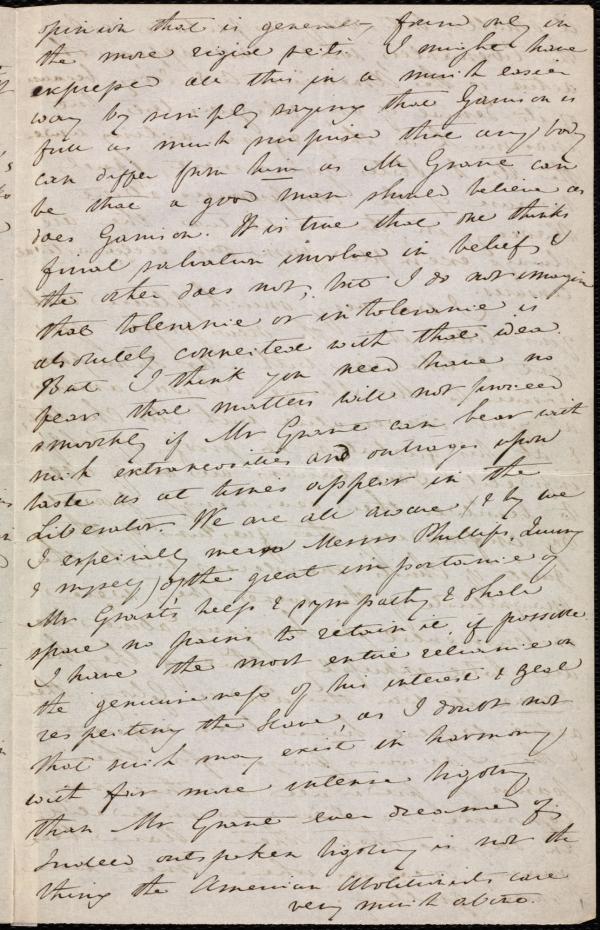 opinion that is generally found only in
the more rigid sects. I might have
expressed all this in a much easier
way by simply saying that Garrison is
full as much surprised that any body
can differ from him as Mr Grant can
be that a good man should believe as
does Garrison. It is true that one thinks
final salvation involved in belief &
the other does not, but I do not imagine
that tolerance or intolerance is
absolutely connected with that idea.
But I think you need have no
fear that matters will not proceed
smoothly if Mr Grant can bear with
such and outrages upon
taste as at times appear in the
Liberator. We are all aware, (& by we
I especially mean Messrs Phillips, Quincy
& myself) of the great importance of
Mr Grant's help & sympathy & shall
spare no pains to retain it, if possible
I have the most entire reliance on
the genuineness of his interest & zeal
respecting the Slave, as I doubt not
that such may exist in harmony
with far more intense bigotry
than Mr Grant ever dreamed of.
Indeed outspoken bigotry is not the
thing the American Abolitionists care
very much about.